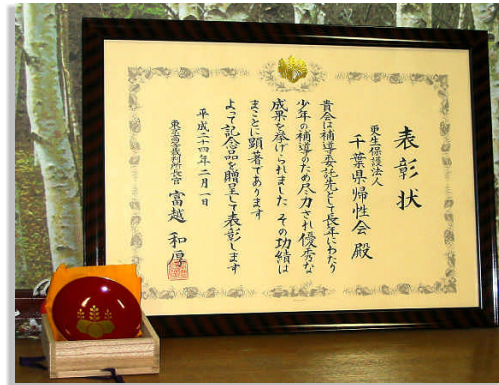 表彰状
更生保護法人
千葉県帰性会 殿
貴会は補導委託先として長年にわたり
少年の補導のため尽力され優秀な
成果を挙げられました その功績は
まことに顕著であります
よって記念品を贈呈して表彰します
平成二十四年二月一日
東京高等裁判所長官 富越 和厚